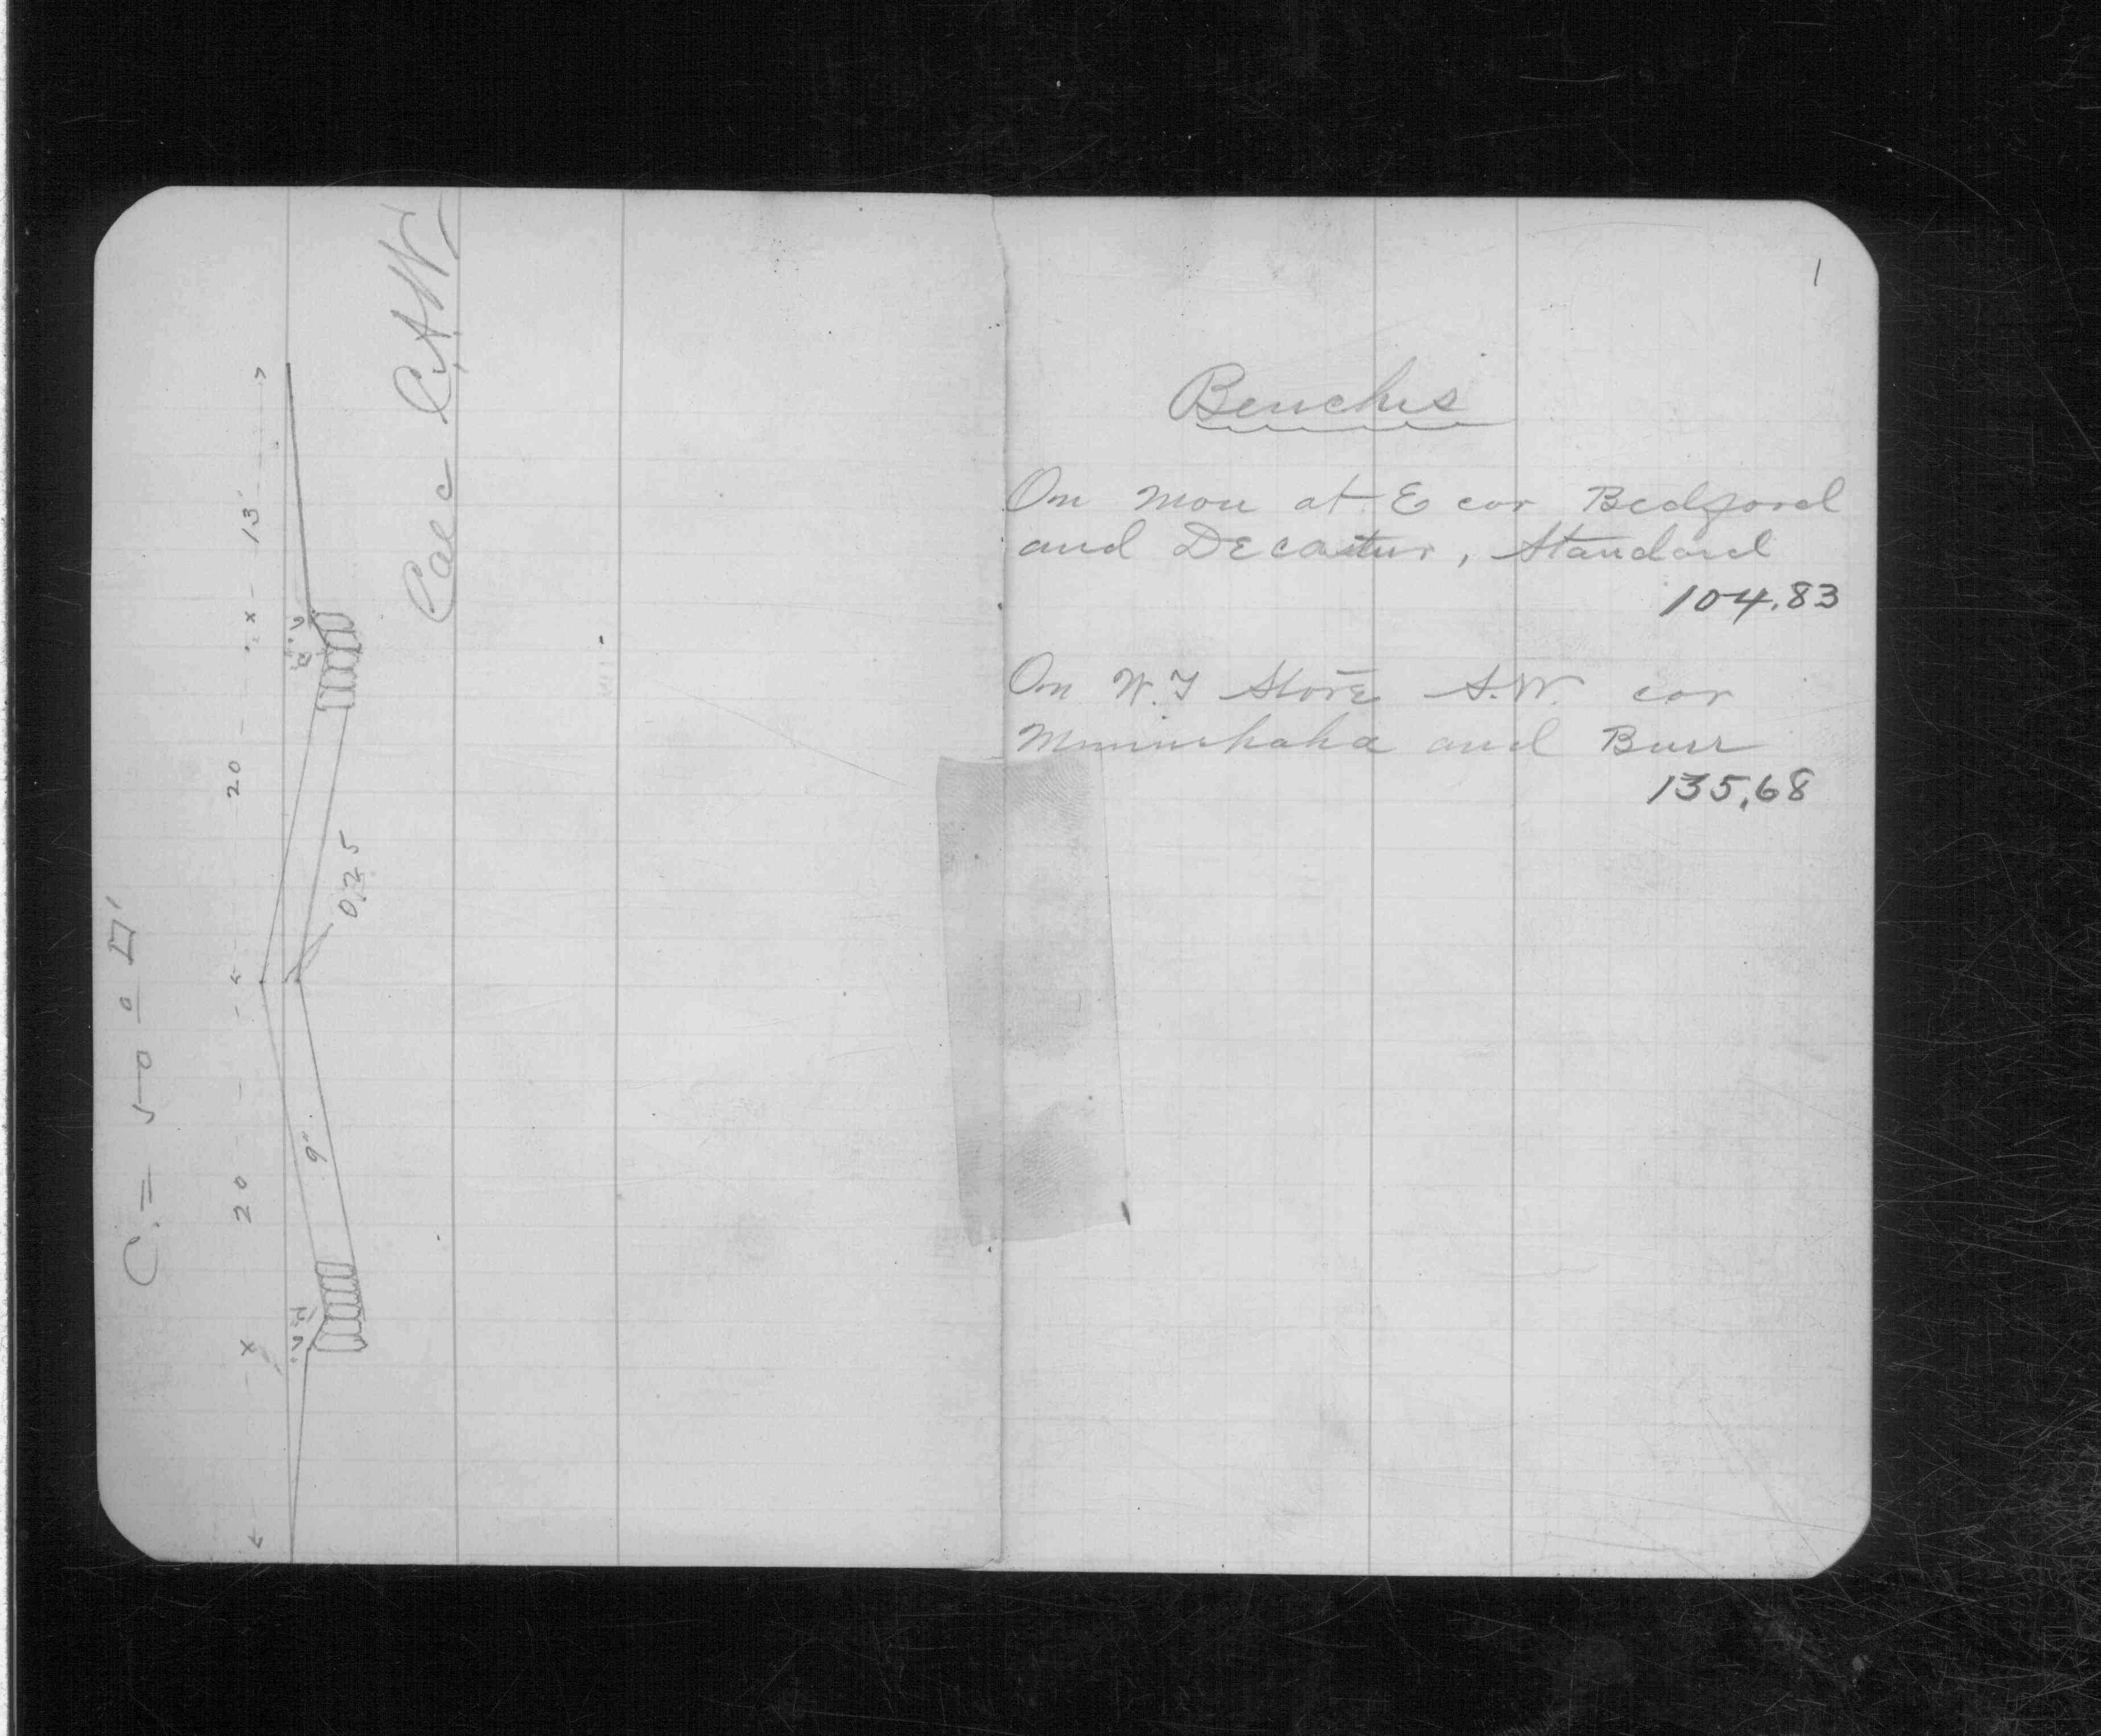 C. = 50 □'
13'
20
20
0.25
9"
Calc C.A.W.
1
Benches
On Mon at E cor Bedford
and Decatur, Standard
104.83
On W.T Store S.W. cor
Minnehaha and Burr
135.68